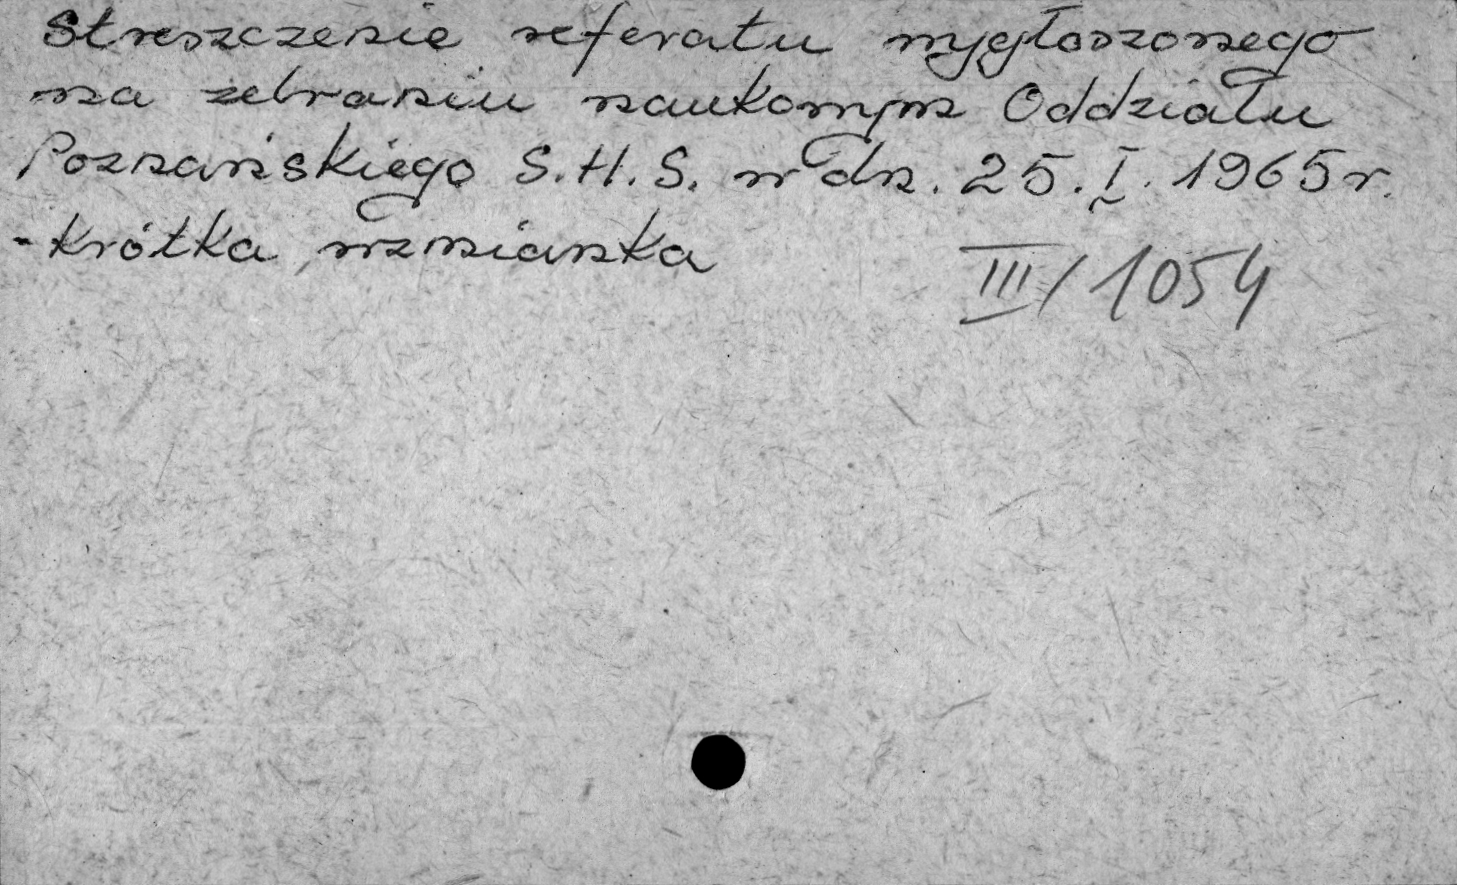 Streszczenie referatu wygłoszonego
na zebraniu naukowym Oddziału
Poznańskiego S.H.S. w dn. 25.I.1965 r.
- krótka wzmianka
III/1054